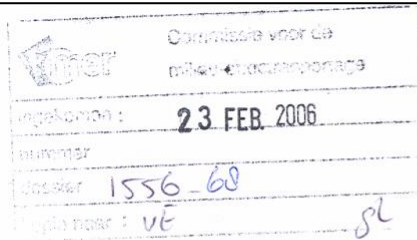 Commissie voor de
mer milieu-effectrapportage
ingekomen : 23 FEB. 2006
nummer
dossier 1556-68
kopie naar : VE gl